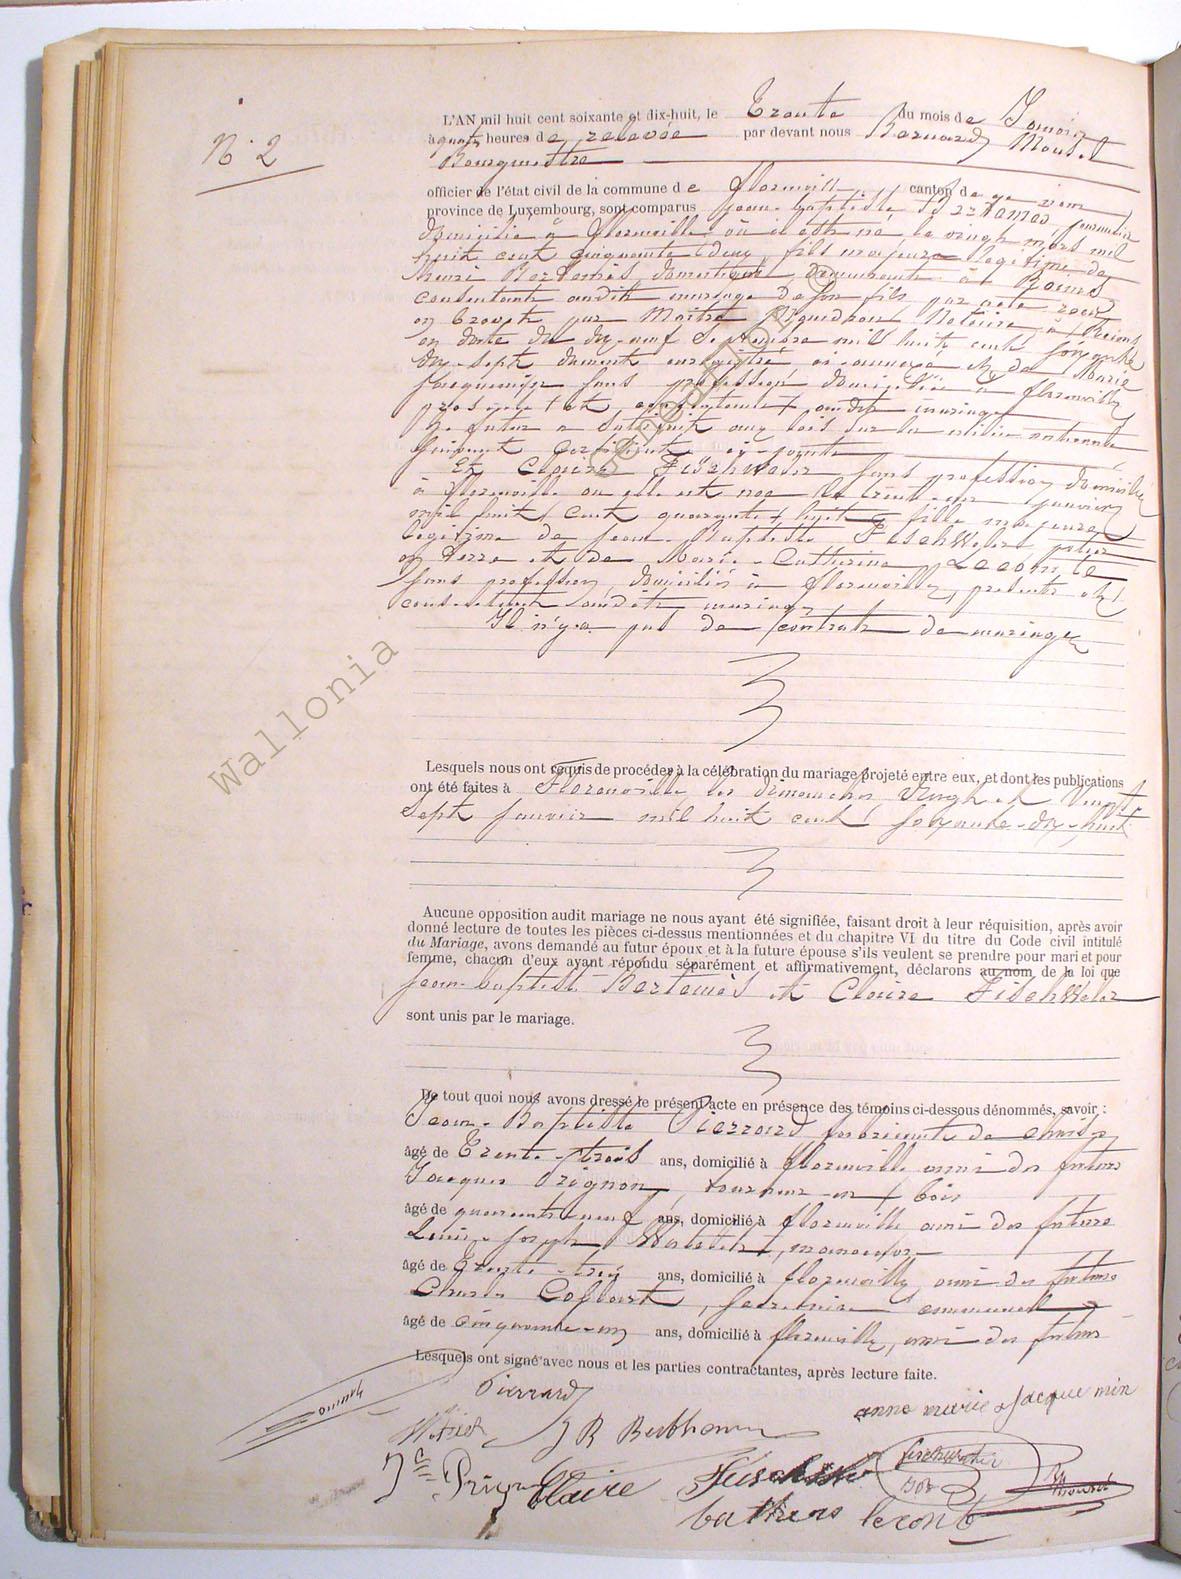 N° 2
L'AN mil huit cent soixante et dix-huit, le Trente du mois de Janvier
à quatre heures de relevée par devant nous Bernard Mousel
Bourgmestre
officier de l'état civil de la commune de Florenville canton de
province de Luxembourg, sont comparus Jean-Baptiste Bertemes, journalier
domicilié à Florenville où il est né le vingt mars mil
huit cent cinquante deux, fils majeur légitime de
Henri Bertemès domestique demeurant à Reims
consentant audit mariage de son fils par acte reçu
en brevet par Maître Notaire à Reims
en date du dix-neuf Septembre mil huit cent soixante
dix-sept dûment enregistré ci-annexé et de Marie
Jacquemin sans profession domiciliée à Florenville
présente et consentante audit mariage
Le futur a satisfait aux lois sur la milice nationale
suivant certificat ci-joint
Et Claire Fischweler sans profession domiciliée
à Florenville où elle est née le trente un janvier
mil huit cent quarante huit fille majeure
légitime de Jean-Baptiste Fischweler potier
en terre et de Marie-Catherine Lecomte
sans profession, domiciliés à Florenville, présents et
consentant audit mariage
Il n'y a pas de contrat de mariage
Lesquels nous ont requis de procéder à la célébration du mariage projeté entre eux, et dont les publications
ont été faites à Florenville les dimanches Vingt et Vingt
Sept Janvier mil huit cent soixante-dix-huit
Aucune opposition audit mariage ne nous ayant été signifiée, faisant droit à leur réquisition, après avoir
donné lecture de toutes les pièces ci-dessus mentionnées et du chapitre VI du titre du Code civil intitulé
du Mariage, avons demandé au futur époux et à la future épouse s'ils veulent se prendre pour mari et pour
femme, chacun d'eux ayant répondu séparément et affirmativement, déclarons au nom de la loi que
Jean-Baptiste Bertemès et Claire Fischweler
sont unis par le mariage.
De tout quoi nous avons dressé le présent acte en présence des témoins ci-dessous dénommés, savoir :
Jean-Baptiste Pierrard fabricant de
âgé de Trente-trois ans, domicilié à Florenville ami des futurs
Jacques Prignon, tourneur en bois
âgé de quarante-neuf ans, domicilié à Florenville ami des futurs
Louis-Joseph, manoeuvre
âgé de Trente-trois ans, domicilié à Florenville, ami des futurs
Charles, secrétaire communal
âgé de cinquante-un ans, domicilié à Florenville, ami des futurs
Lesquels ont signé avec nous et les parties contractantes, après lecture faite.
Pierrard
anne marie Jacquemin
J B
Jcs Prign Claire Fischweler
catherine lecomte
Wallonia